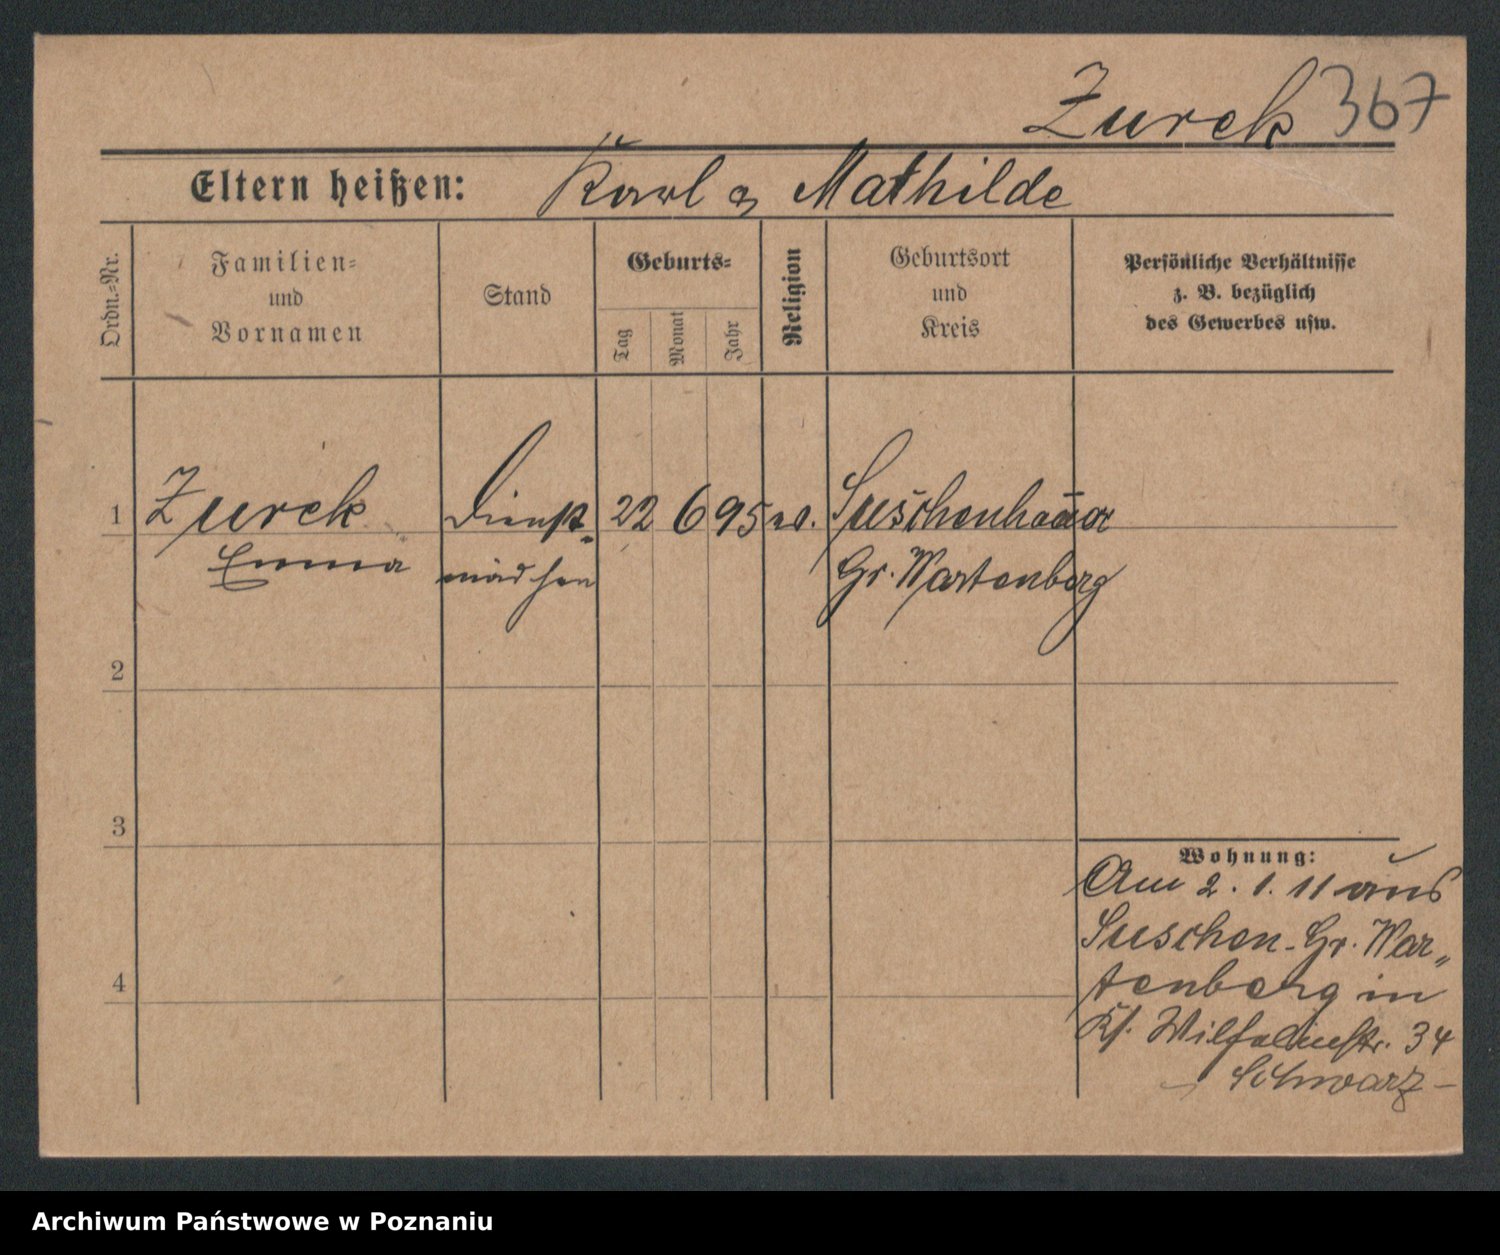 Zurek 367
Eltern heißen: Karl & Mathilde
Ordn.-Nr.
Familien-
und
Vornamen
Stand
Geburts-
Tag
Monat
Jahr
Religion
Geburtsort
und
Kreis
Persönliche Verhältnisse
z. B. bezüglich
des Gewerbes usw.
1 Zurek Dienst- 22 6 95 ev. Suschenhammer
Emma mädchen Gr. Wartenberg
2
3
4
Wohnung:
Am 2. 1. 11 aus
Suschen-Gr. War-
tenberg in
Wilhelmstr. 34
Schwarz -
Archiwum Państwowe w Poznaniu